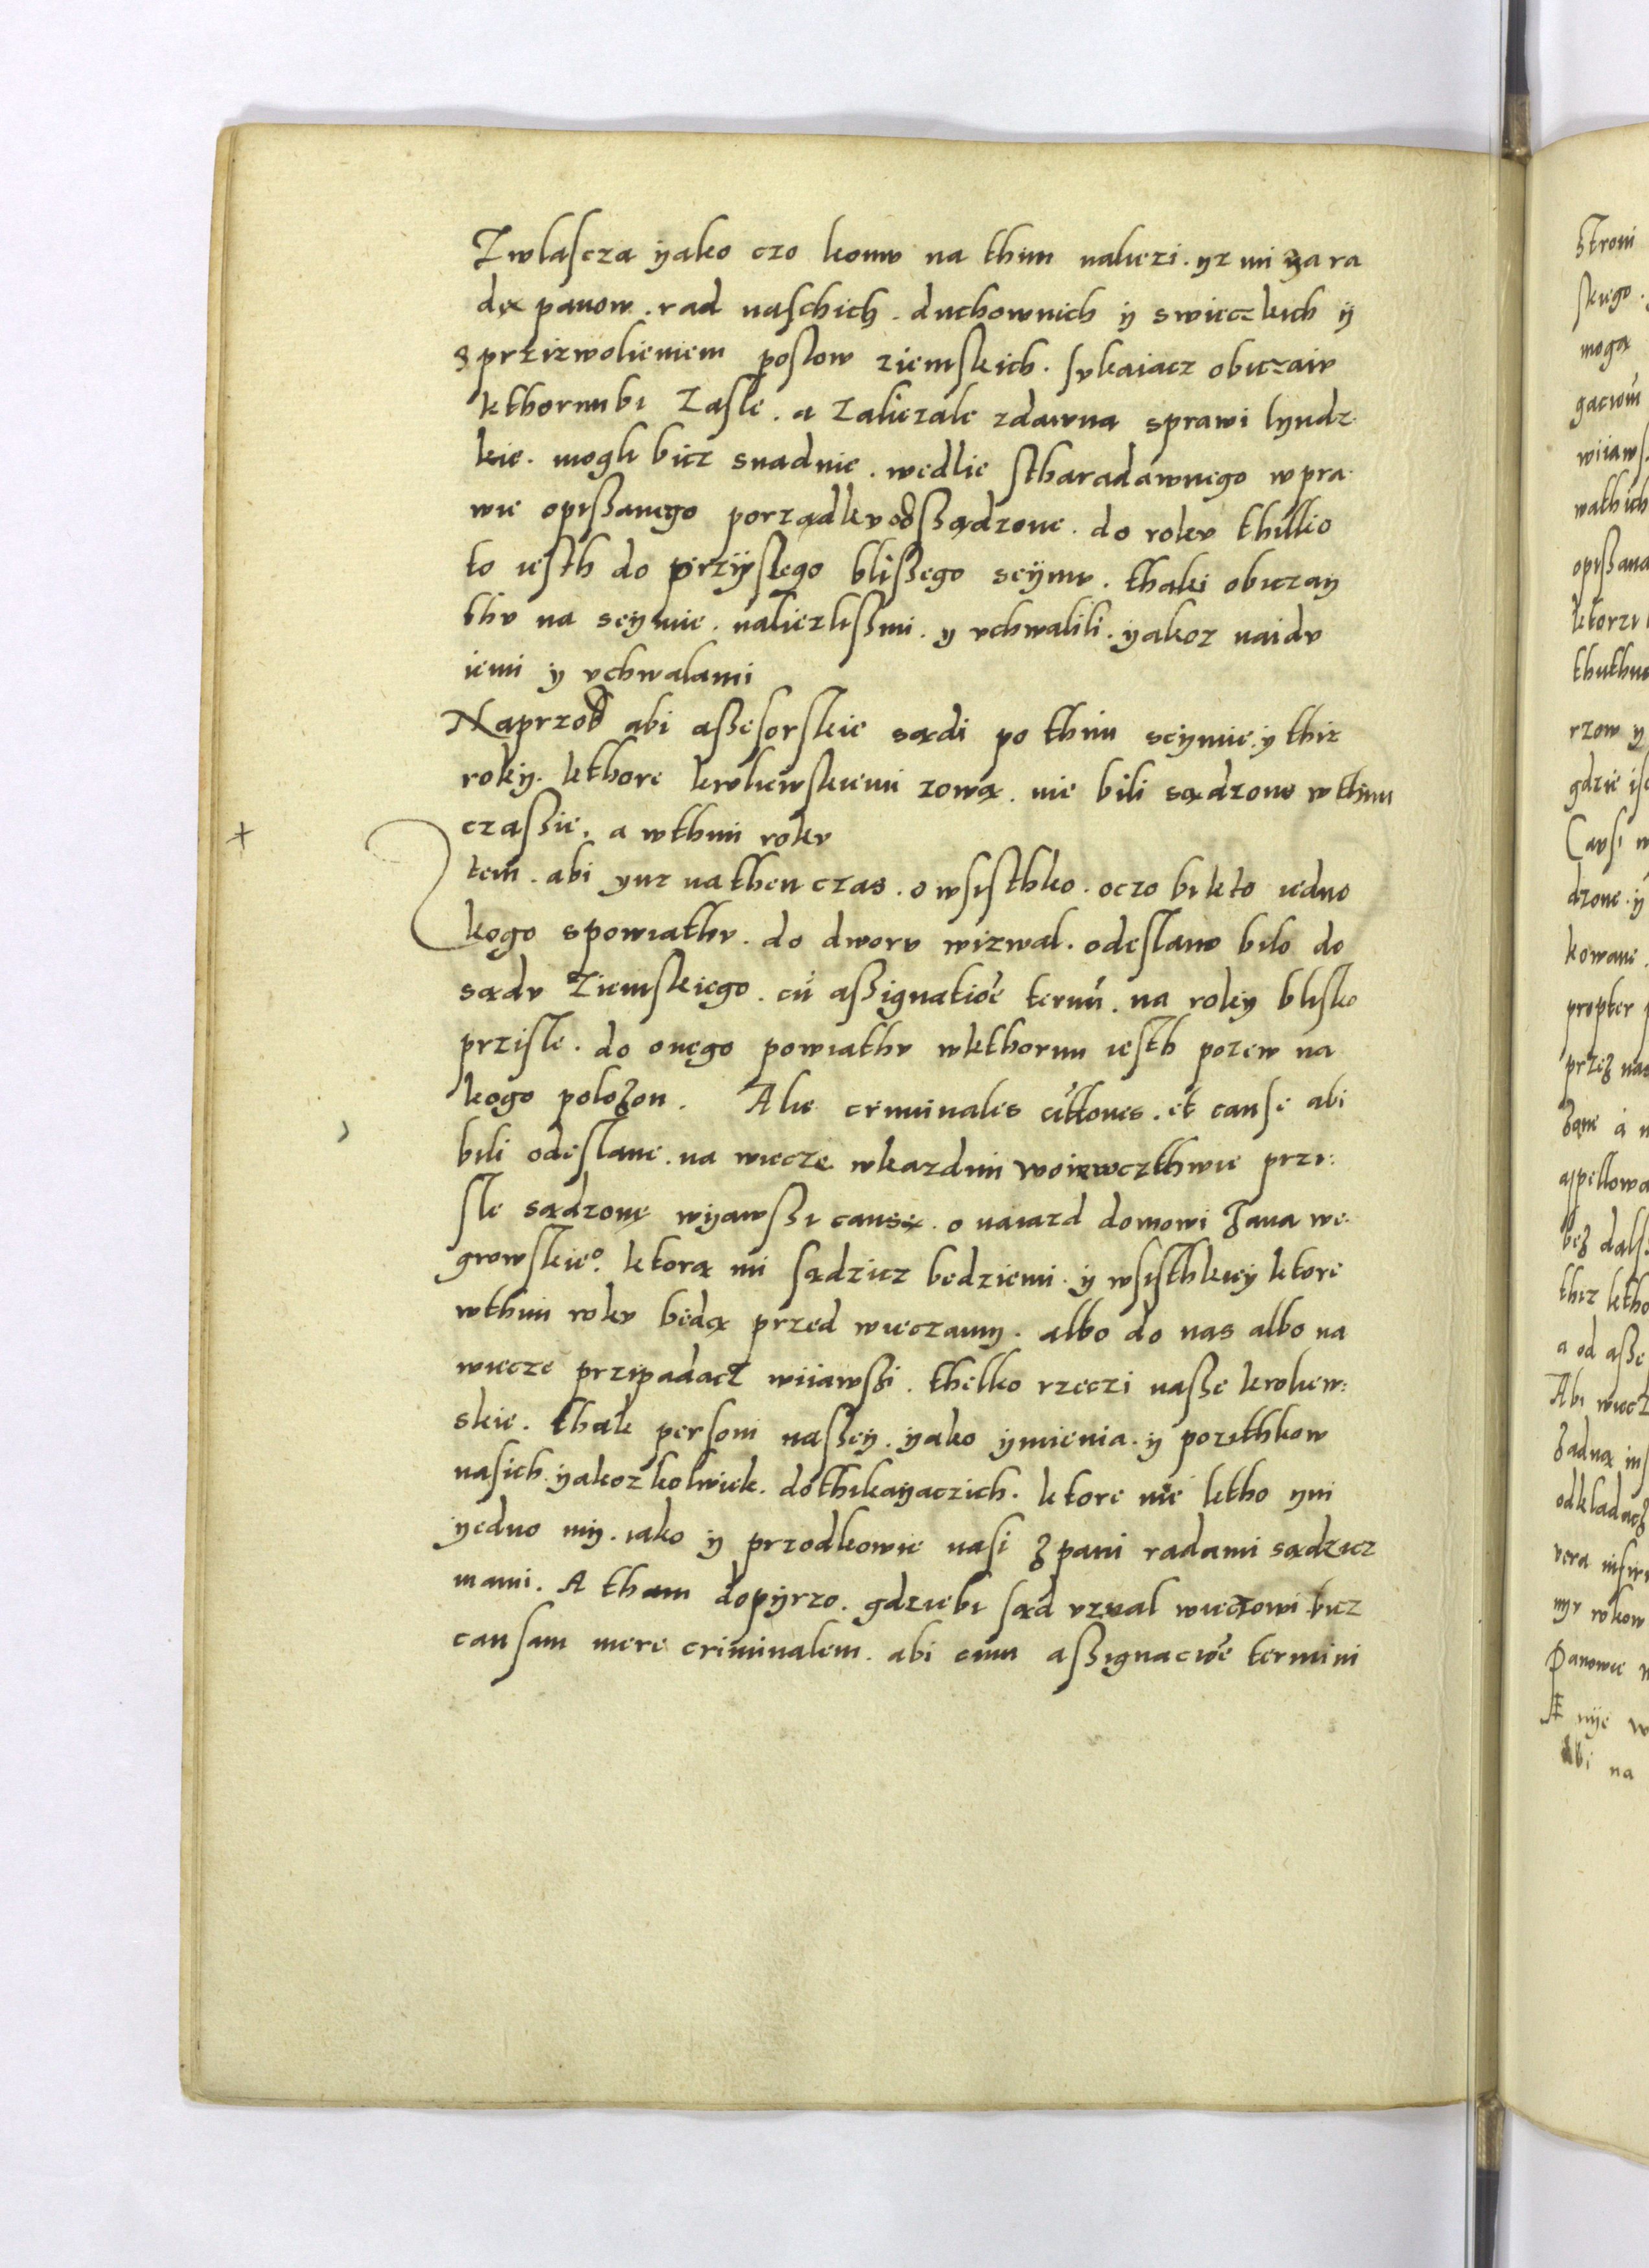 Zwlascza yako czo komv na thim naliezi. yz mi za ra
dą panow. rad naschich. duchownich y swieczkich y
z przizwolieniem poslow ziemskich. sukaiacz obiczaiv
kthorimbi Zasle. a Zaliezale zdawna sprawi lyudz
kie. mogli bicz snadnie. wedlie stharadawnego w pra
wie opissanego porządkv odssądzone. do rokv thilko
to iesth do przyslego blissego seymv. thaki obiczay
thv na seymie. naliezlissmi. y vchwalili. yakoz naidv
iemi y vchwalami
Naprzod abi assesorskie sądi po thim seymie. y thiz
roky. kthore krolewskiemi zową. nie bili sądzone w thim
czassie. a w thim rokv
Item. abi yuz na then czas. o wsisthko. oczo bi kto iedno
kogo spowiathv. do dworv wizwal. odeslano bilo do
sądv Ziemskiego. cū assignatiōe termī. na roky blisko
prziste. do onego powiathv wkthorim iesth pozew na
kogo polozon. Alie criminales cittones. et cause abi
bili odeslane. na wiecze wkazdim woiewczthwie przi:
sle sądzone wyiawssi causą. o naiazd domowi Jana we
growskie<sup>o</sup>. ktorą mi sądzicz bedziemi. y wsisthkiey ktore
wthim rokv bedą przed wieczamy. albo do nas albo na
wiecze przipadacz wiiawssi. thelko rzeczi nasse krolew:
skie. thak personi nassey. yako ymienia. y pozithkow
nasich yakozkolwiek. dothikayaczich. ktore nie ktho yni
yedno my. iako y przodkowie nasi z pani radami sądzicz
mami. A tham dopyrzo. gdziebi sąd vznal wieczowi bicz
causam mere criminalem. abi cum assignacioē termini